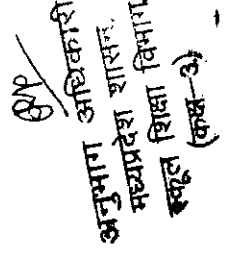 अनुभाग अधिकारी
मध्यप्रदेश शासन,
स्कूल शिक्षा विभाग
(कक्ष-3)